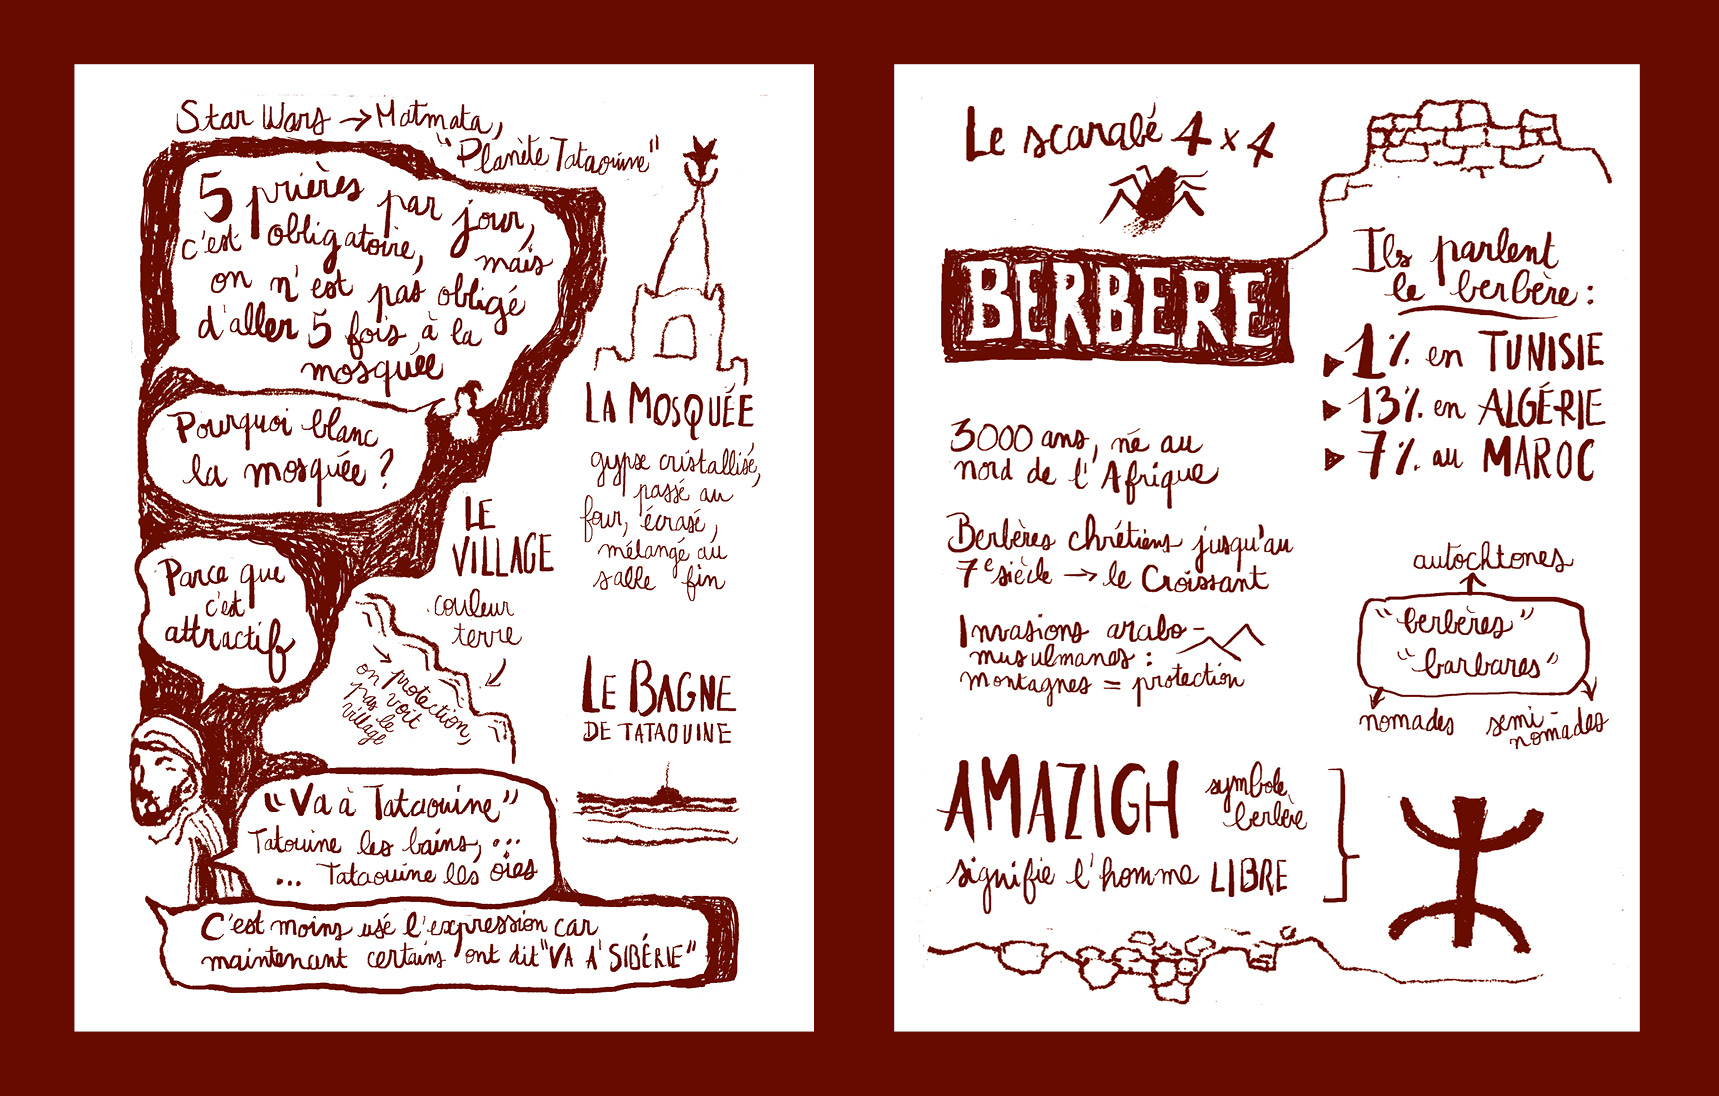 Star Wars → Matmata,
"Planète Tataouine"
5 prières par jour,
c'est obligatoire, mais
on n'est pas obligé
d'aller 5 fois à la
mosquée
Pourquoi blanc
la mosquée ?
Parce que
c'est
attractif
LA MOSQUÉE
gypse cristallisé,
passé au
four, écrasé,
mélangé au
sable fin
LE
VILLAGE
couleur
terre
→ protection,
on voit
pas le
village
LE BAGNE
DE TATAOUINE
"Va à Tataouine"
Tatouine les bains, ...
... Tataouine les oies
C'est moins usé l'expression car
maintenant certains ont dit "VA A SIBÉRIE"
Le scarabé 4x4
BERBERE
Ils parlent
le berbère :
1% en TUNISIE
13% en ALGÉRIE
7% au MAROC
3000 ans, né au
nord de l'Afrique
Berbères chrétiens jusqu'au
7e siècle → le Croissant
Invasions arabo-
musulmanes :
montagnes = protection
autochtones
"berbères"
"barbares"
nomades
semi-
nomades
AMAZIGH
symbole
berbère
signifie l'homme LIBRE